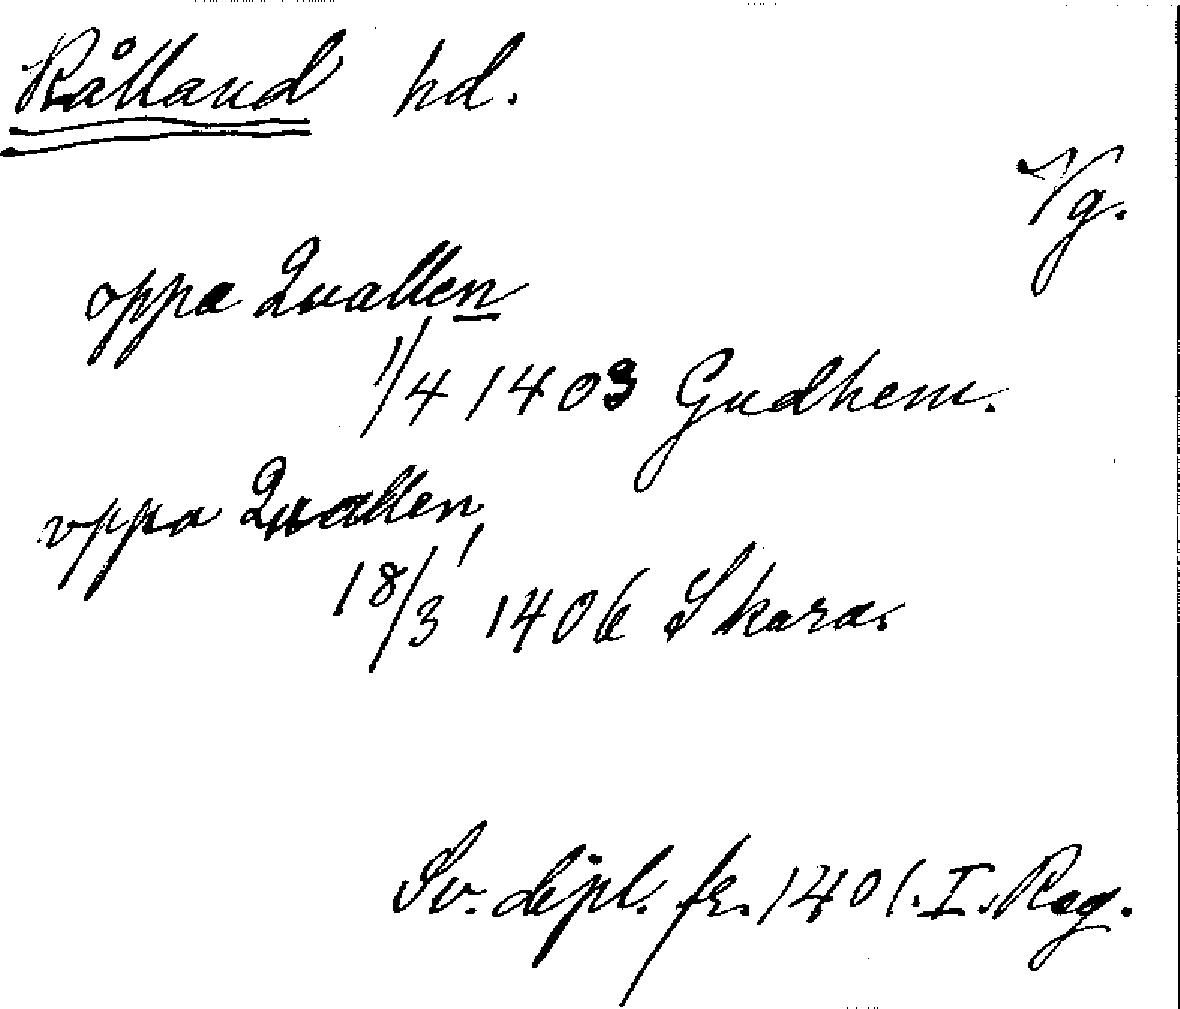 Kålland hd.
Vg.
oppa Quallen
1/4 1403 Gudhem.
vppa Quallen,
18/3 1406 Skara.
Sv. dipl. fr. 1401. I. Reg.